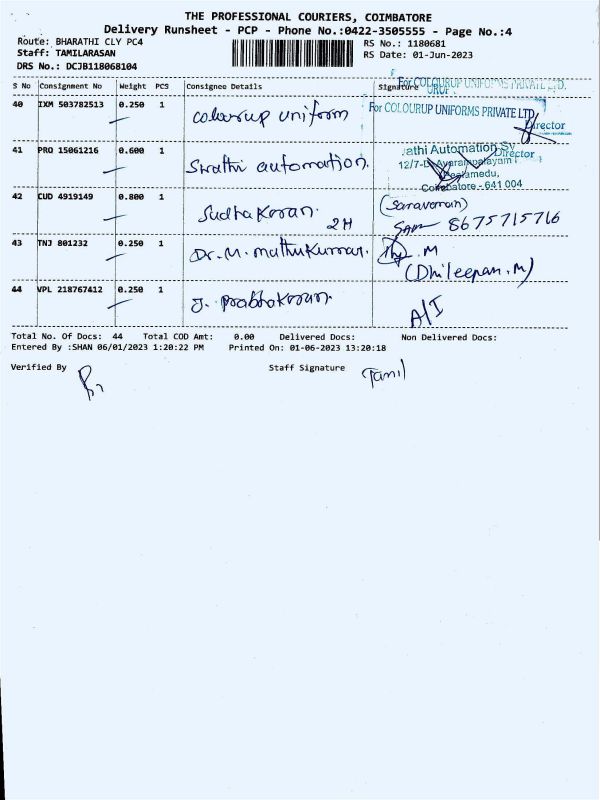 THE PROFESSIONAL COURIERS, COIMBATORE
Delivery Runsheet - PCP - Phone No.:0422-3505555 - Page No.:4
Route: BHARATHI CLY PC4 RS No.: 1180681
Staff: TAMILARASAN RS Date: 01-Jun-2023
DRS No.: DCJB118068104
S No Consignment No Weight PCS Consignee Details Signature
For COLOURUP UNIFORMS PRIVATE LTD.
40 IXM 503782513 0.250 1 Colourup uniform For COLOURUP UNIFORMS PRIVATE LTD
Director
41 PRO 15061216 0.600 1 Swathi automation. athi Automation
Director
12/7-
Peelamedu,
Coimbatore - 641 004
42 CUD 4919149 0.800 1 Sudhakaran. (Saravanan)
2H 8675715716
43 TNJ 801232 0.250 1 Dr. M. Muthukumar. M
(Dhileepan.M)
44 VPL 218767412 0.250 1 J. Prabhakaran. A/I
Total No. Of Docs: 44 Total COD Amt: 0.00 Delivered Docs: Non Delivered Docs:
Entered By :SHAN 06/01/2023 1:20:22 PM Printed On: 01-06-2023 13:20:18
Verified By Staff Signature Tamil